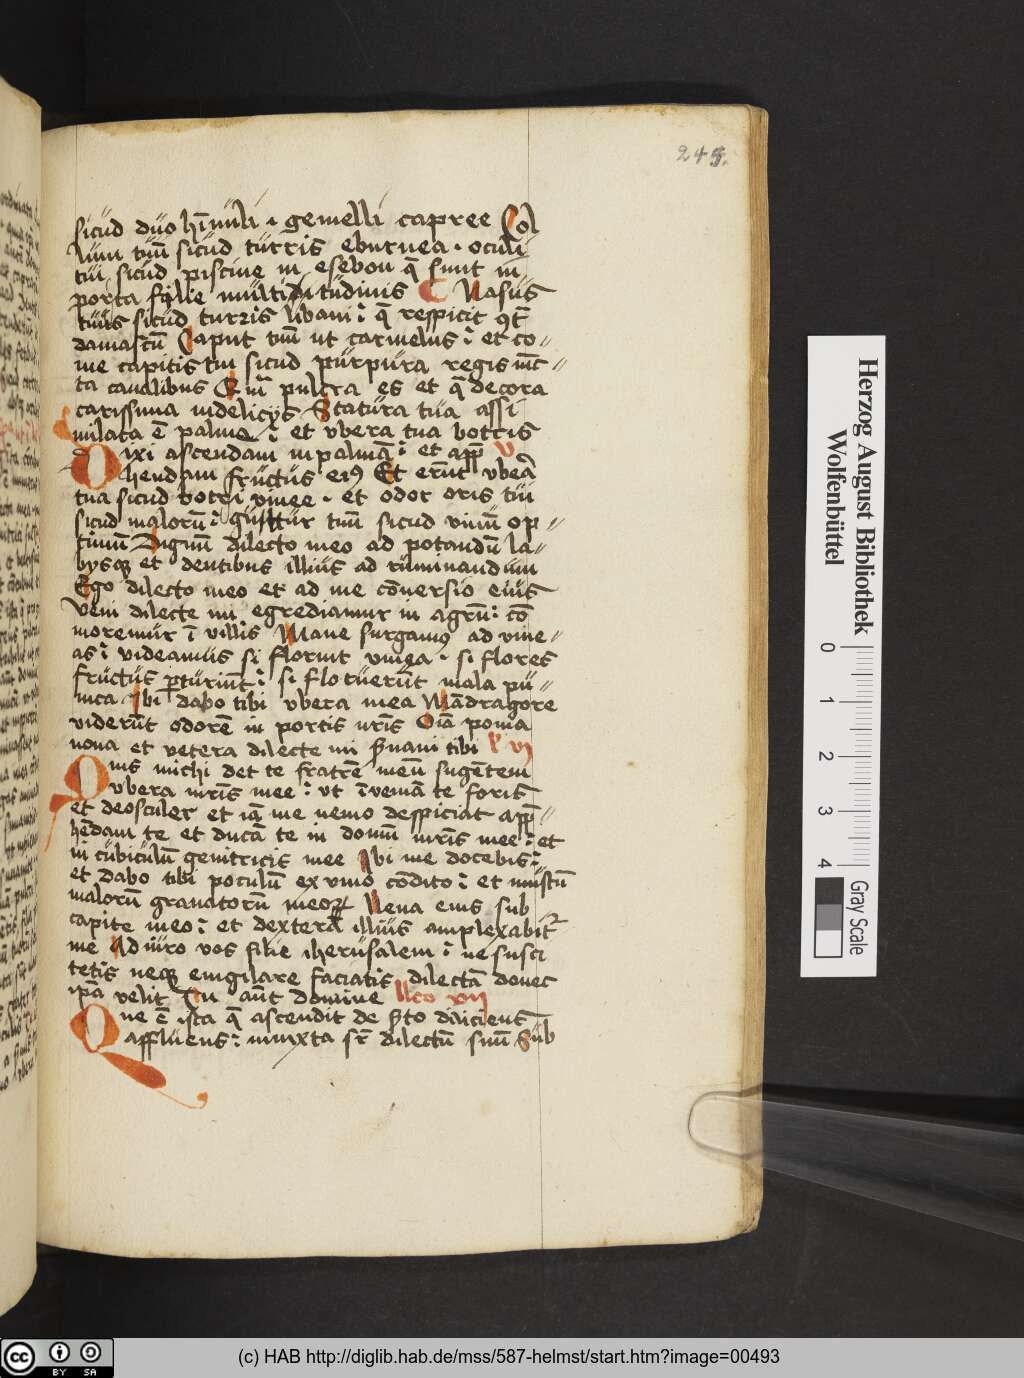 245.
sicud duo hīnuli · gemelli capree Col
lum tuū sicud turris eburnea · oculi
tui sicud piscine in esebon q̄ sunt in
porta filie multitudinis Nasus
tuus sicud turris libani : q̄ respicit 9t̄
damascū Caput tuū ut carmelus : et co-
me capitis tui sicud purpura regis iūc-
ta canalibus Quā pulcra es et q̄ decora
carissima in delicijs Statura tua assi
milata ē palme : et vbera tua botris
Dixi ascendam in palmā : et app̄
hendam fructus ei9 Et erūt vbera
tua sicud botri vinee · et odor oris tui
sicud malorū : guttur tuū sicud vinū op-
timū Dignū dilecto meo ad potandū la-
bysq̄ et dentibus illius ad ruminandum
Ego dilecto meo et ad me cōuersio eius
Veni dilecte mi egrediamur in agrū : cō
moremur ī villis Mane surgam9 ad vine-
as : videamus si floruit vinea · si flores
fructus p̄turiūt : si floruerūt mala pu-
nica Ibi dabo tibi vbera mea Mādragore
viderūt odorē in portis nr̄is Oīa poma
noua et vetera dilecte mi s̄uaui tibi
Quis michi det te fratrē meū sugētem
vbera mr̄is mee : ut īueniā te foris
et deosculer et iā me nemo despiciat app̄-
hēdam te et ducā te in domū mr̄is mee : et
in cubiculū genitricis mee Ibi me docebis :
et dabo tibi poculū ex vino cōdito : et mustū
malorū granatorū meoꝝ Leua eius sub
capite meo : et dextera illius amplexabit᷑
me Adiuro vos filie iherusalem : ne susci
tetis neq̄ euigilare faciatis dilectā donec
ip̄a velit Tu aūt domine
Que ē ista q̄ ascendit de s̄to
affluens : innixta sr̄ dilectū suū Sub
Herzog August Bibliothek
Wolfenbüttel
0 1 2 3 4
Gray Scale
cc BY SA
(c) HAB http://diglib.hab.de/mss/587-helmst/start.htm?image=00493